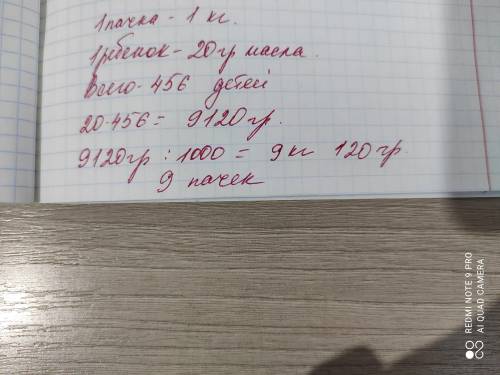 1 пачка - 1 кг.
1 ребёнок - 20 гр масла.
Всего - 456 детей
20·456 = 9120 гр.
9120гр : 1000 = 9 кг 120 гр.
9 пачек
REDMI NOTE 9 PRO
AI QUAD CAMERA